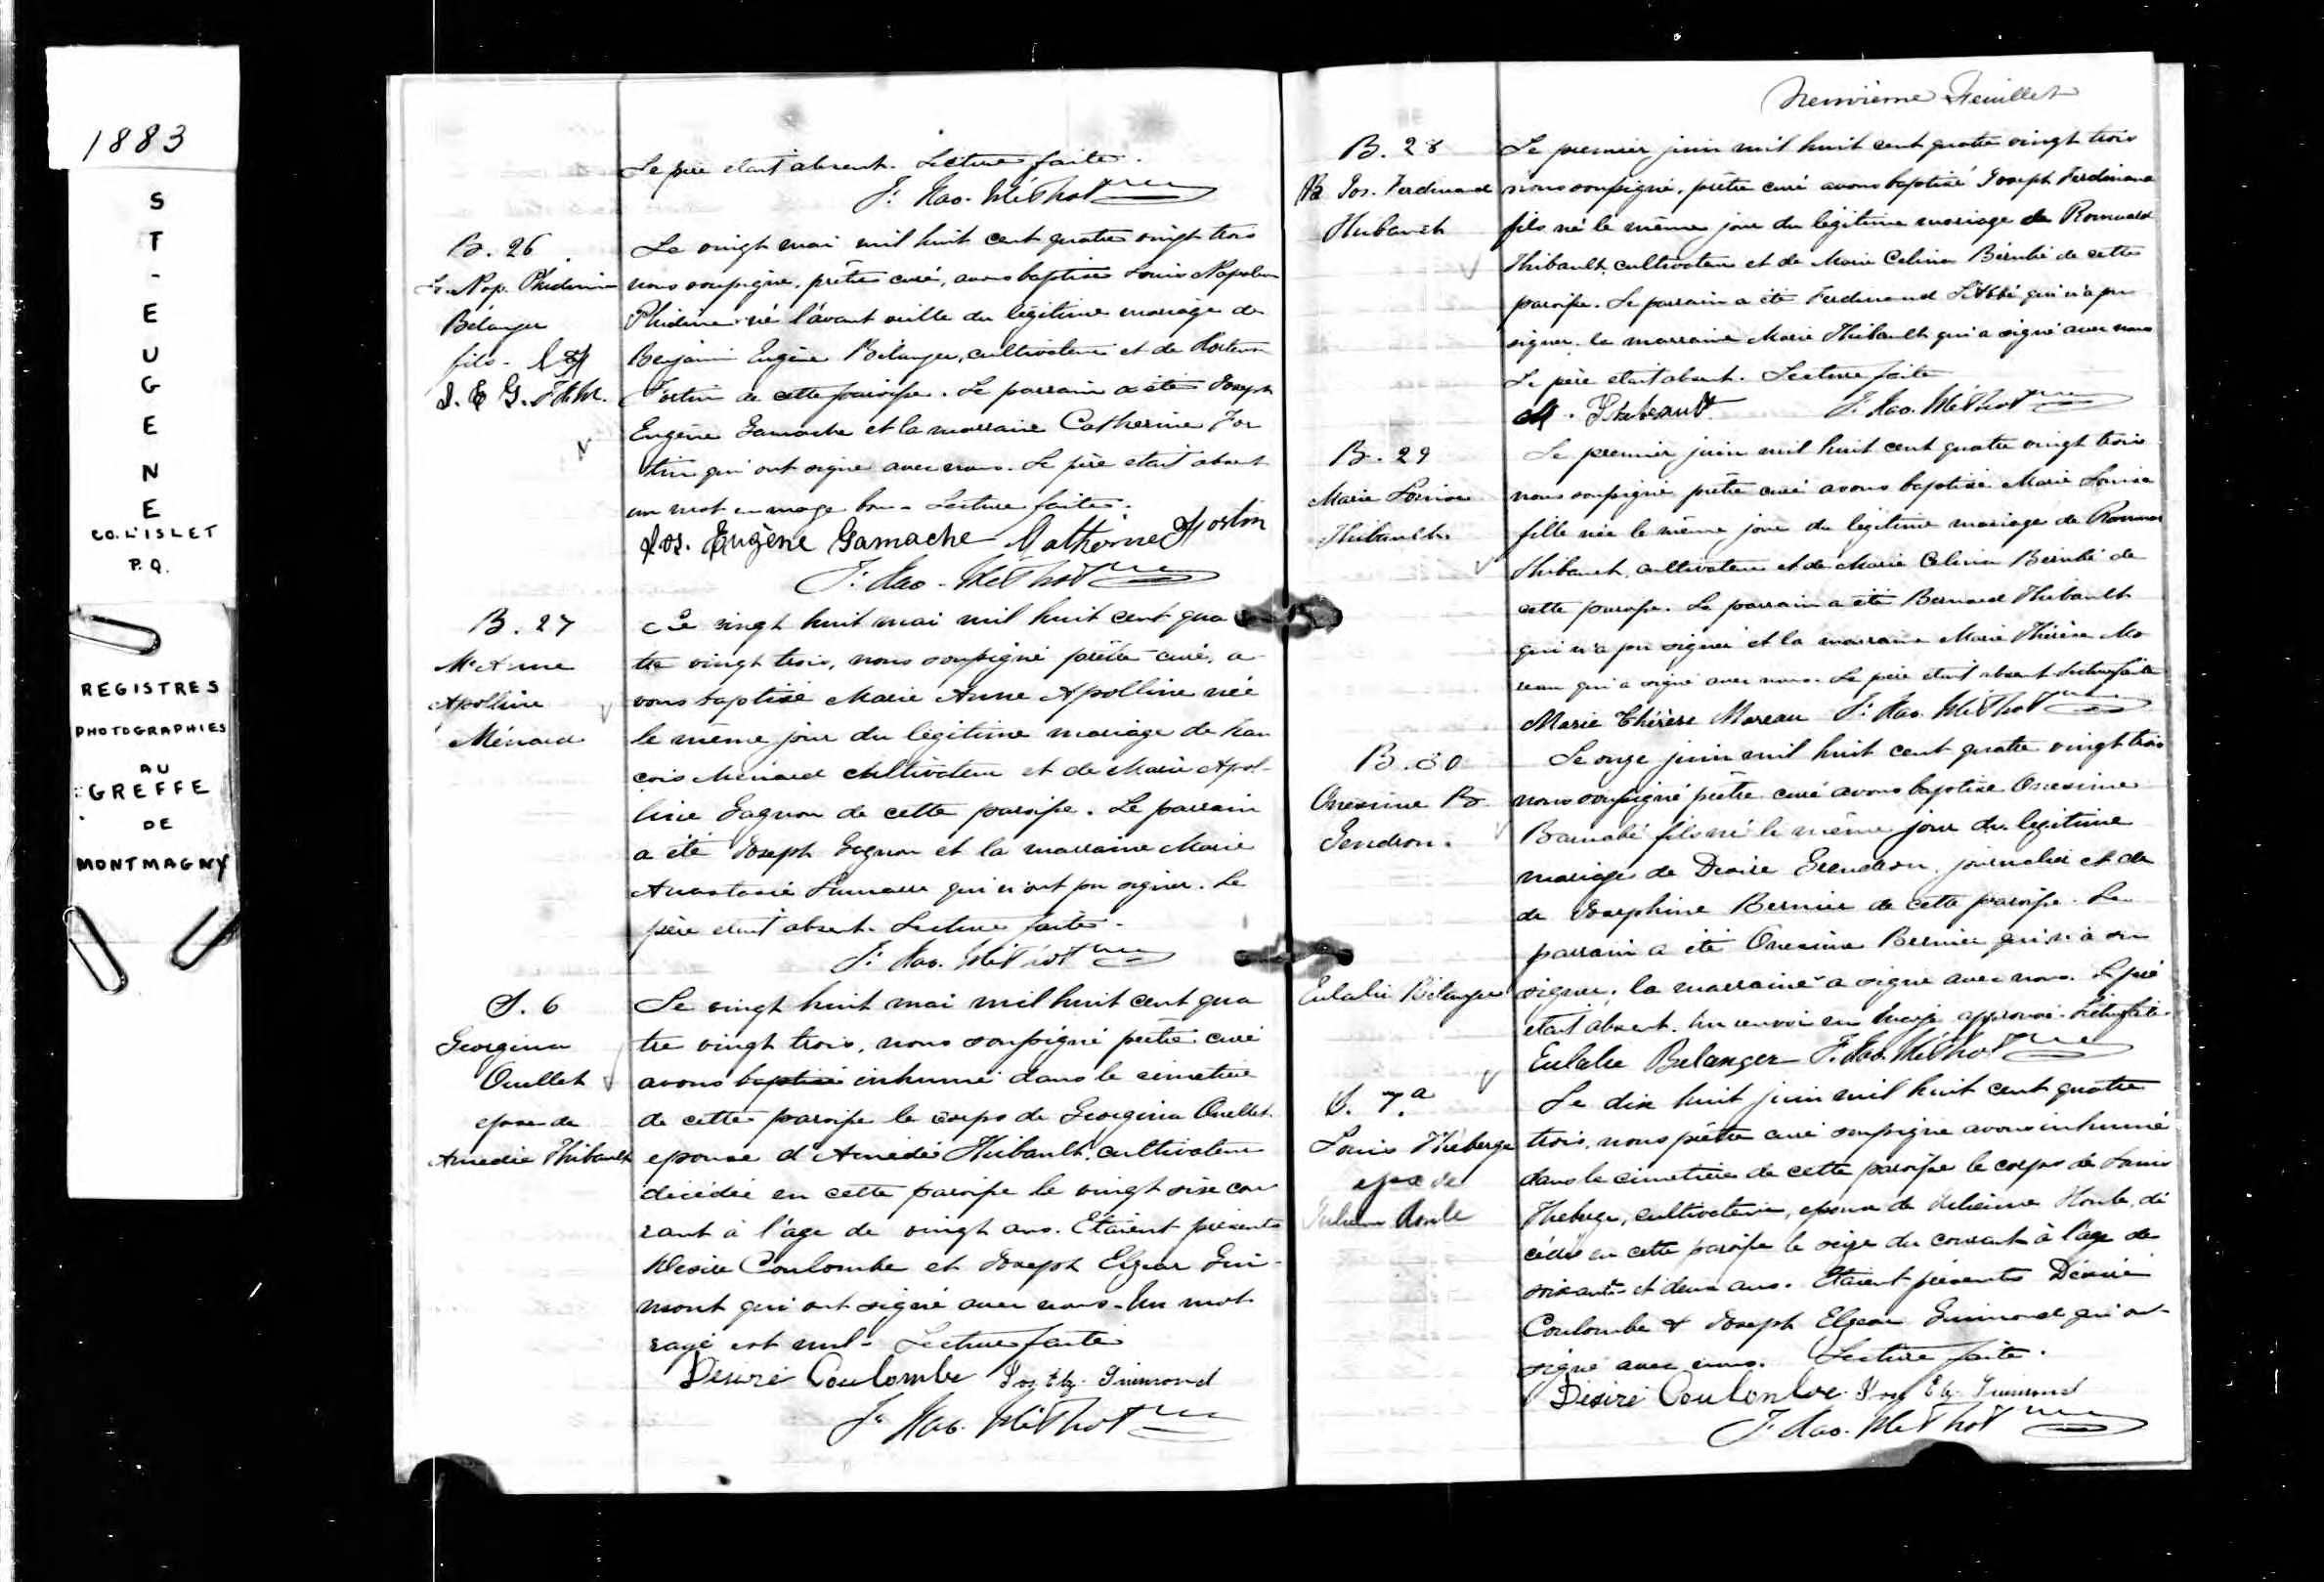 1883
ST-EUGENE
CO. L'ISLET
P.Q.
REGISTRES
PHOTOGRAPHIES
AU
GREFFE
DE
MONTMAGNY
Le père etait absent. Lecture faite.
F. Méthot ptre
B. 26
L. Nap.
Belanger
fils
J. E. G.
Le vingt mai mil huit cent quatre vingt trois
nous soussigné, prêtre curé, avons baptisé Louis Napoleon
né l'avant veille du légitime mariage de
Benjamin Eugène Bélanger, cultivateur et de
Fortin de cette paroisse. Le parrain a été Joseph
Eugène Gamache et la marraine Catherine For
tin qui ont signé avec nous. Le père etait absent
un mot en marge bon - Lecture faite.
Jos. Eugène Gamache Catherine Fortin
Méthot ptre
B. 27
M. Anne
Apolline
Ménard
Le vingt huit mai mil huit cent qua
tre vingt trois, nous soussigné prêtre curé, a
vons baptisé Marie Anne Apolline née
le même jour du légitime mariage de Fran
cois Ménard cultivateur et de Marie Apol-
line Gagnon de cette paroisse. Le parrain
a été Joseph Gagnon et la marraine Marie
Anastasie qui n'ont pu signer. Le
père etait absent. Lecture faite.
Méthot ptre
S. 6
Georgina
Ouellet
epouse de
Amedée Thibault
Le vingt huit mai mil huit cent qua
tre vingt trois, nous soussigné prêtre curé
avons baptisé inhumé dans le cimetière
de cette paroisse le corps de Georgina Ouellet
epouse d'Amédé Thibault, cultivateur
décédée en cette paroisse le vingt six cou
rant à l'âge de vingt ans. Etaient présents
Désiré Coulombe et Joseph Elzear Gui-
mont qui ont signé avec nous - Un mot
rayé est nul - Lecture faite
Désiré Coulombe Jos. Elz. Guimond
Méthot ptre
Neuvième Feuillet
B. 28
Jos. Ferdinand
Thibault
Le premier juin mil huit cent quatre vingt trois
nous soussigné, prêtre curé avons baptisé Joseph Ferdinand
fils né le même jour du légitime mariage de Romuald
Thibault, cultivateur et de Marie Celina Bérubé de cette
paroisse. Le parrain a été Ferdinand qui n'a pu
signer. la marraine Marie Thibault qui a signé avec nous
Le père etait absent. Lecture faite
M. Thibault Méthot ptre
B. 29
Marie Louise
Thibault
Le premier juin mil huit cent quatre vingt trois
nous soussigné prêtre curé avons baptisé Marie Louise
fille née le même jour du légitime mariage de
Thibault, cultivateur et de Marie Celina Bérubé de
cette paroisse. Le parrain a été Bernard Thibault
qui n'a pu signer et la marraine Marie Thérèse Mo
reau qui a signé avec nous. Le père etait absent Lecture faite
Marie Thérèse Moreau Méthot ptre
B. 30
Onesime B.
Gendron.
Le onze juin mil huit cent quatre vingt trois
nous soussigné prêtre curé avons baptisé Onesime
Barnabé fils né le même jour du légitime
mariage de Desiré Gendron, journalier et de
de Josephine Bernier de cette paroisse. Le
parrain a été Onesime Bernier qui n'a su
Eulalie Bélanger
signer, la marraine a signé avec nous. Le père
etait absent. Un renvoi en marge approuvé. Lecture faite.
Eulalie Belanger Méthot ptre
S. 7.a
Louis Theberge
epx de
Le dix huit juin mil huit cent quatre
trois, nous prêtre curé soussigné avons inhumé
dans le cimetière de cette paroisse le corps de Louis
Theberge, cultivateur, epoux de Houle, dé
cédé en cette paroisse le seize du courant à l'âge de
soixante et deux ans. Etaient présents Désiré
Coulombe & Joseph Elzear Guimond qui ont
signé avec nous. Lecture faite.
Désiré Coulombe. Jos. Elz. Guimond
Méthot ptre